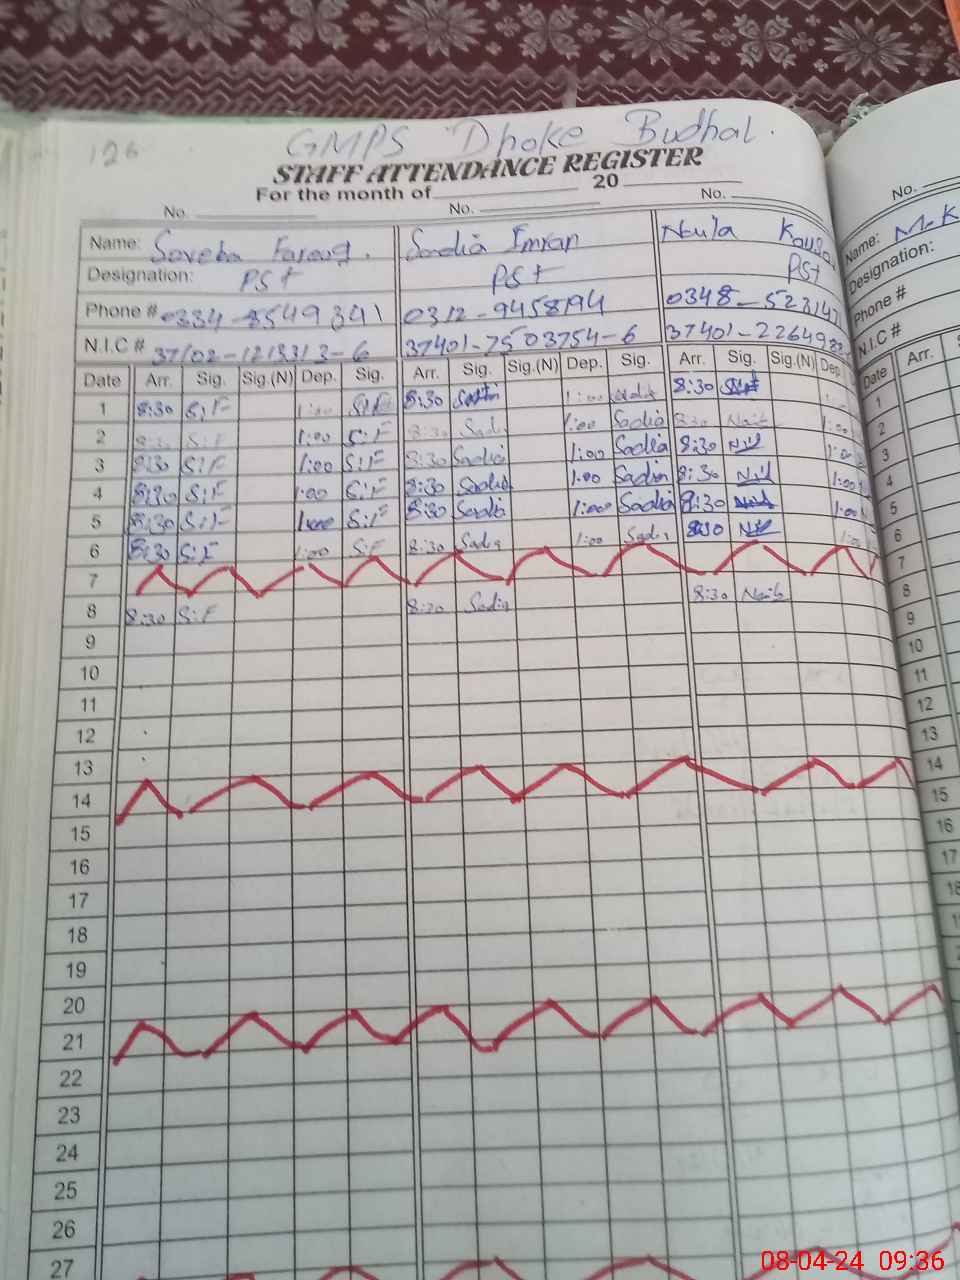 126
GMPS Dhoke Budhal.
STAFF ATTENDANCE REGISTER
For the month of 20
No. No. No. No.
Name: Saveba Farooq. Sadia Imran Naila Name: M.K
Designation: PST PST PST Designation:
Phone # 0334-8549341 0312-9458194 0348-5231471 Phone #
N.I.C # 37102-1213313-6 37401-7503754-6 37401-22649 N.I.C #
Date Arr. Sig. Sig.(N) Dep. Sig. Arr. Sig. Sig.(N) Dep. Sig. Arr. Sig. Sig.(N) Dep. Date Arr. S
1 8:30 S:F 1:00 S:F 8:30 1:00 Sadia 8:30 1
2 8:30 S:F 1:00 S:F 8:30 Sadia 1:00 Sadia 8:30 1:00 2
3 8:30 S:F 1:00 S:F 8:30 Sadia 1:00 Sadia 8:30 1:00 3
4 8:30 S:F 1:00 S:F 8:30 Sadia 1:00 Sadia 8:30 1:00 4
5 8:30 S:F 1:00 S:F 8:30 Sadia 1:00 Sadia 8:30 1:00 5
6 8:30 S:F 1:00 S:F 8:30 Sadia 1:00 Sadia 8:30 1:00 6
7 7
8 8:30 S:F 8:30 Sadia 8:30 8
9 9
10 10
11 11
12 12
13 13
14 14
15 15
16 16
17 17
18 18
19
20
21
22
23
24
25
26
27
08-04-24 09:36